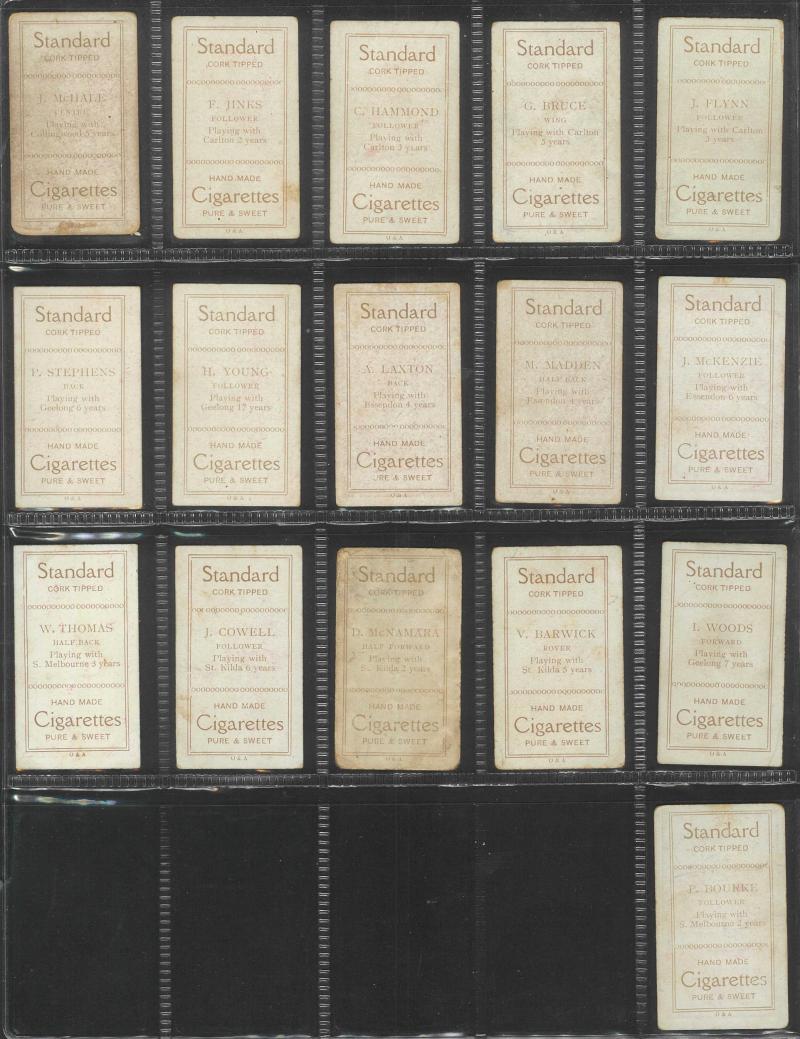 Standard
CORK TIPPED
J. McHALE
CENTRE
Playing with
Collingwood 5 years
HAND MADE
Cigarettes
PURE & SWEET
Standard
CORK TIPPED
F. JINKS
FOLLOWER
Playing with
Carlton 2 years
HAND MADE
Cigarettes
PURE & SWEET
O & A
Standard
CORK TIPPED
C. HAMMOND
FOLLOWER
Playing with
Carlton 3 years
HAND MADE
Cigarettes
PURE & SWEET
O & A
Standard
CORK TIPPED
G. BRUCE
WING
Playing with Carlton
5 years
HAND MADE
Cigarettes
PURE & SWEET
O & A
Standard
CORK TIPPED
J. FLYNN
FOLLOWER
Playing with Carlton
3 years
HAND MADE
Cigarettes
PURE & SWEET
O & A
Standard
CORK TIPPED
P. STEPHENS
BACK
Playing with
Geelong 6 years
HAND MADE
Cigarettes
PURE & SWEET
O & A
Standard
CORK TIPPED
H. YOUNG
FOLLOWER
Playing with
Geelong 12 years
HAND MADE
Cigarettes
PURE & SWEET
O & A
Standard
CORK TIPPED
A. LAXTON
BACK
Playing with
Essendon 4 years
HAND MADE
Cigarettes
PURE & SWEET
O & A
Standard
CORK TIPPED
M. MADDEN
HALF BACK
Playing with
Essendon 4 years
HAND MADE
Cigarettes
PURE & SWEET
O & A
Standard
CORK TIPPED
J. McKENZIE
FOLLOWER
Playing with
Essendon 6 years
HAND MADE
Cigarettes
PURE & SWEET
O & A
Standard
CORK TIPPED
W. THOMAS
HALF BACK
Playing with
S. Melbourne 3 years
HAND MADE
Cigarettes
PURE & SWEET
O & A
Standard
CORK TIPPED
J. COWELL
FOLLOWER
Playing with
St. Kilda 6 years
HAND MADE
Cigarettes
PURE & SWEET
O & A
Standard
CORK TIPPED
D. McNAMARA
HALF FORWARD
Playing with
St. Kilda 2 years
HAND MADE
Cigarettes
PURE & SWEET
O & A
Standard
CORK TIPPED
V. BARWICK
ROVER
Playing with
St. Kilda 5 years
HAND MADE
Cigarettes
PURE & SWEET
O & A
Standard
CORK TIPPED
I. WOODS
FORWARD
Playing with
Geelong 7 years
HAND MADE
Cigarettes
PURE & SWEET
O & A
Standard
CORK TIPPED
P. BOURKE
FOLLOWER
Playing with
S. Melbourne 2 years
HAND MADE
Cigarettes
PURE & SWEET
O & A